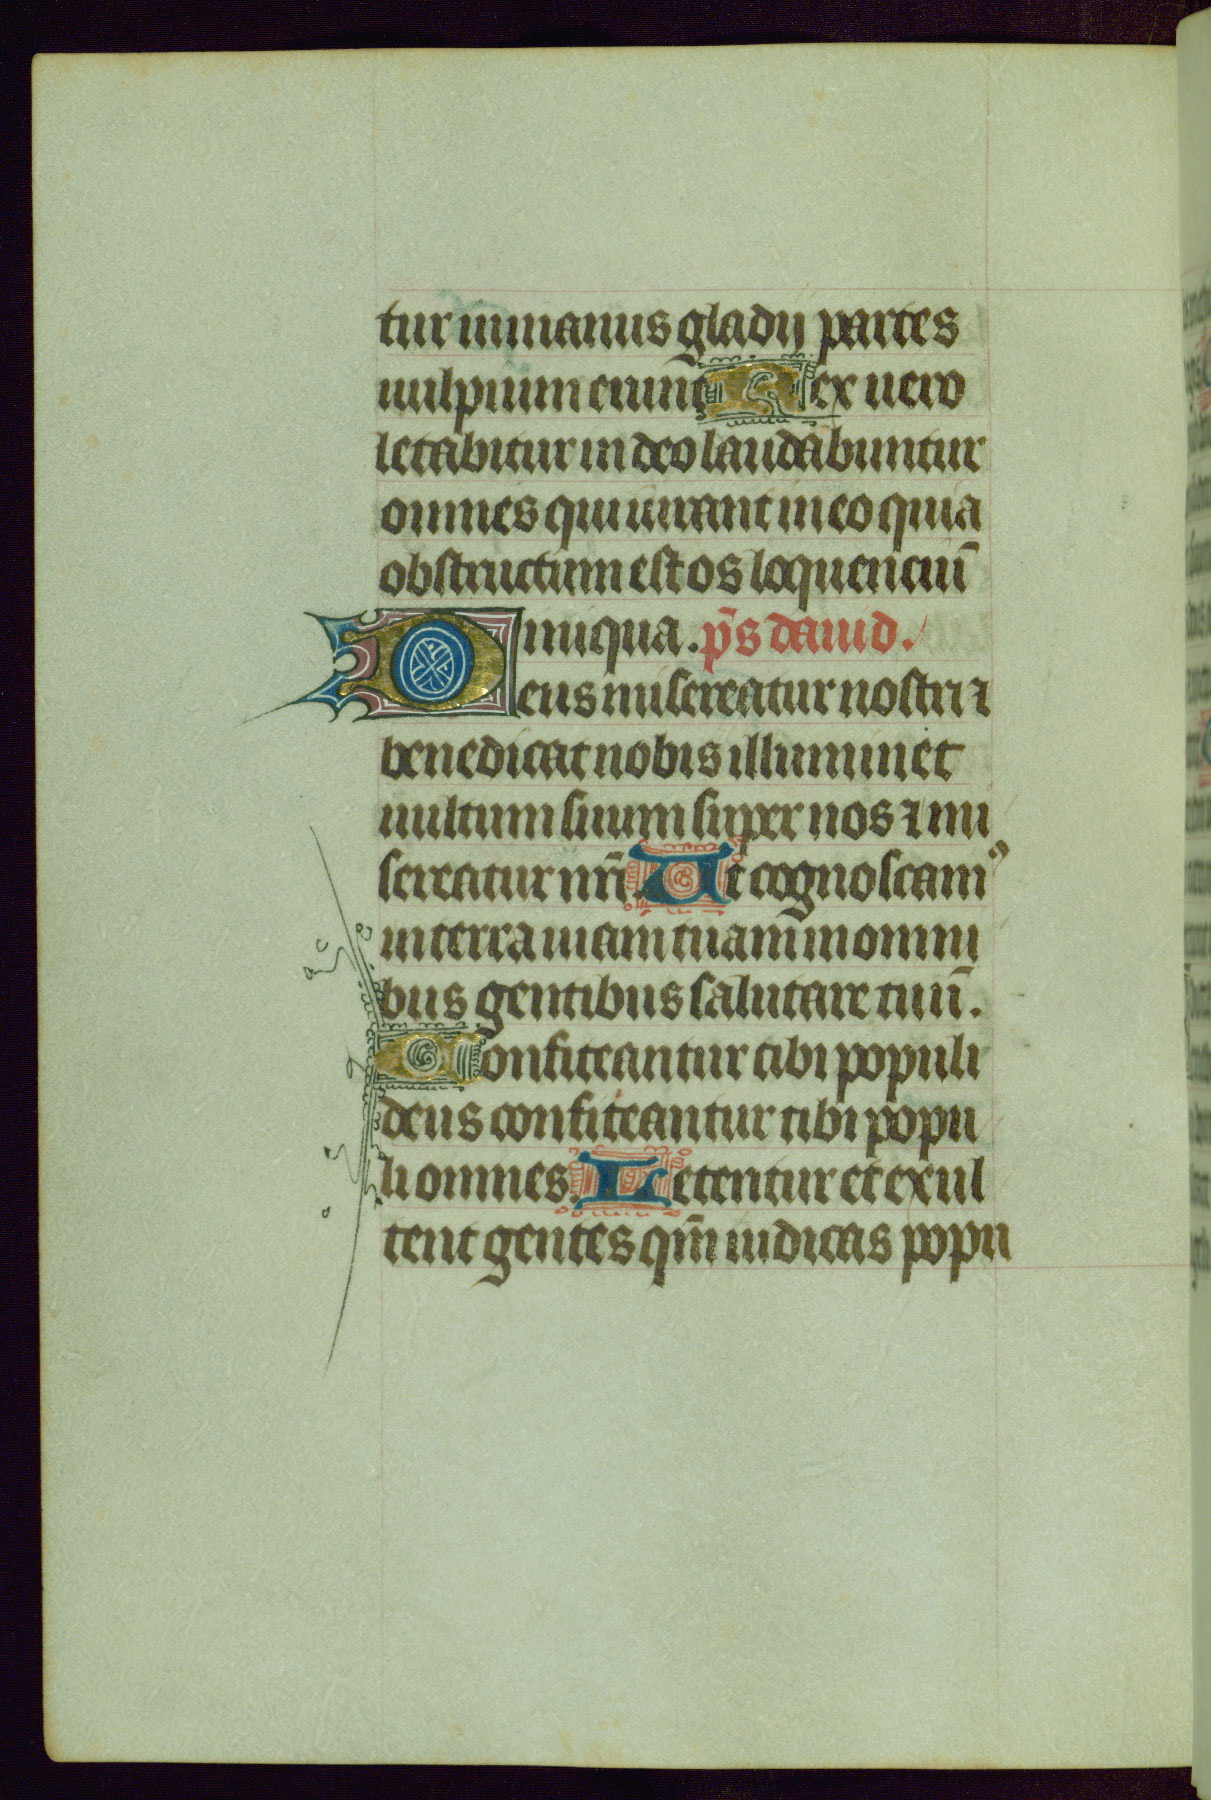 tur in manus gladij partes
uulpium erunt Rex uero
letabitur in deo laudabuntur
omnes qui iurant in eo quia
obstructum est os loquenciū
iniqua. p̄s dauid.
Deus misereatur nostri ⁊
benedicat nobis illuminet
uultum suum super nos ⁊ mi
sereatur nr̄i. Ut cognoscamꝰ
in terra uiam tuam in omni
bus gentibus salutare tuū.
Confiteantur tibi populi
deus confiteantur tibi popu
li omnes. Letentur et exul
tent gentes qm̄ iudicas popu